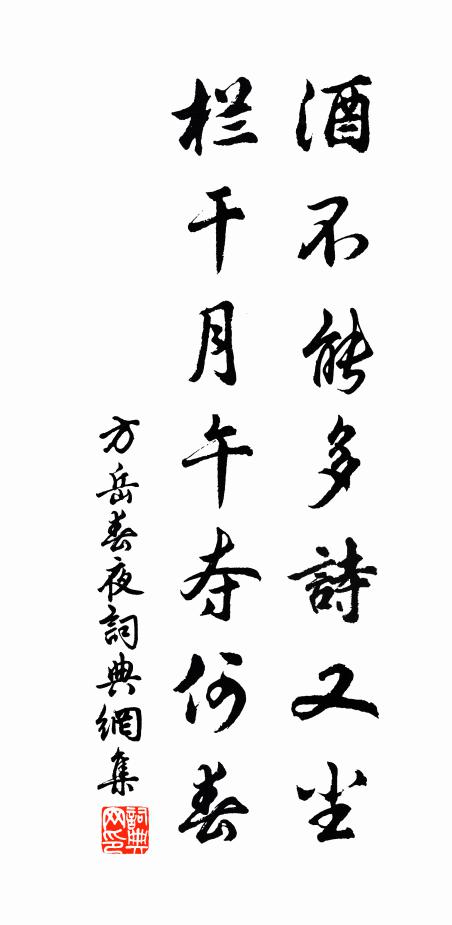 酒不能多詩又尘
栏干月午奈何春
方岳春夜詞典網集
詞典
网印